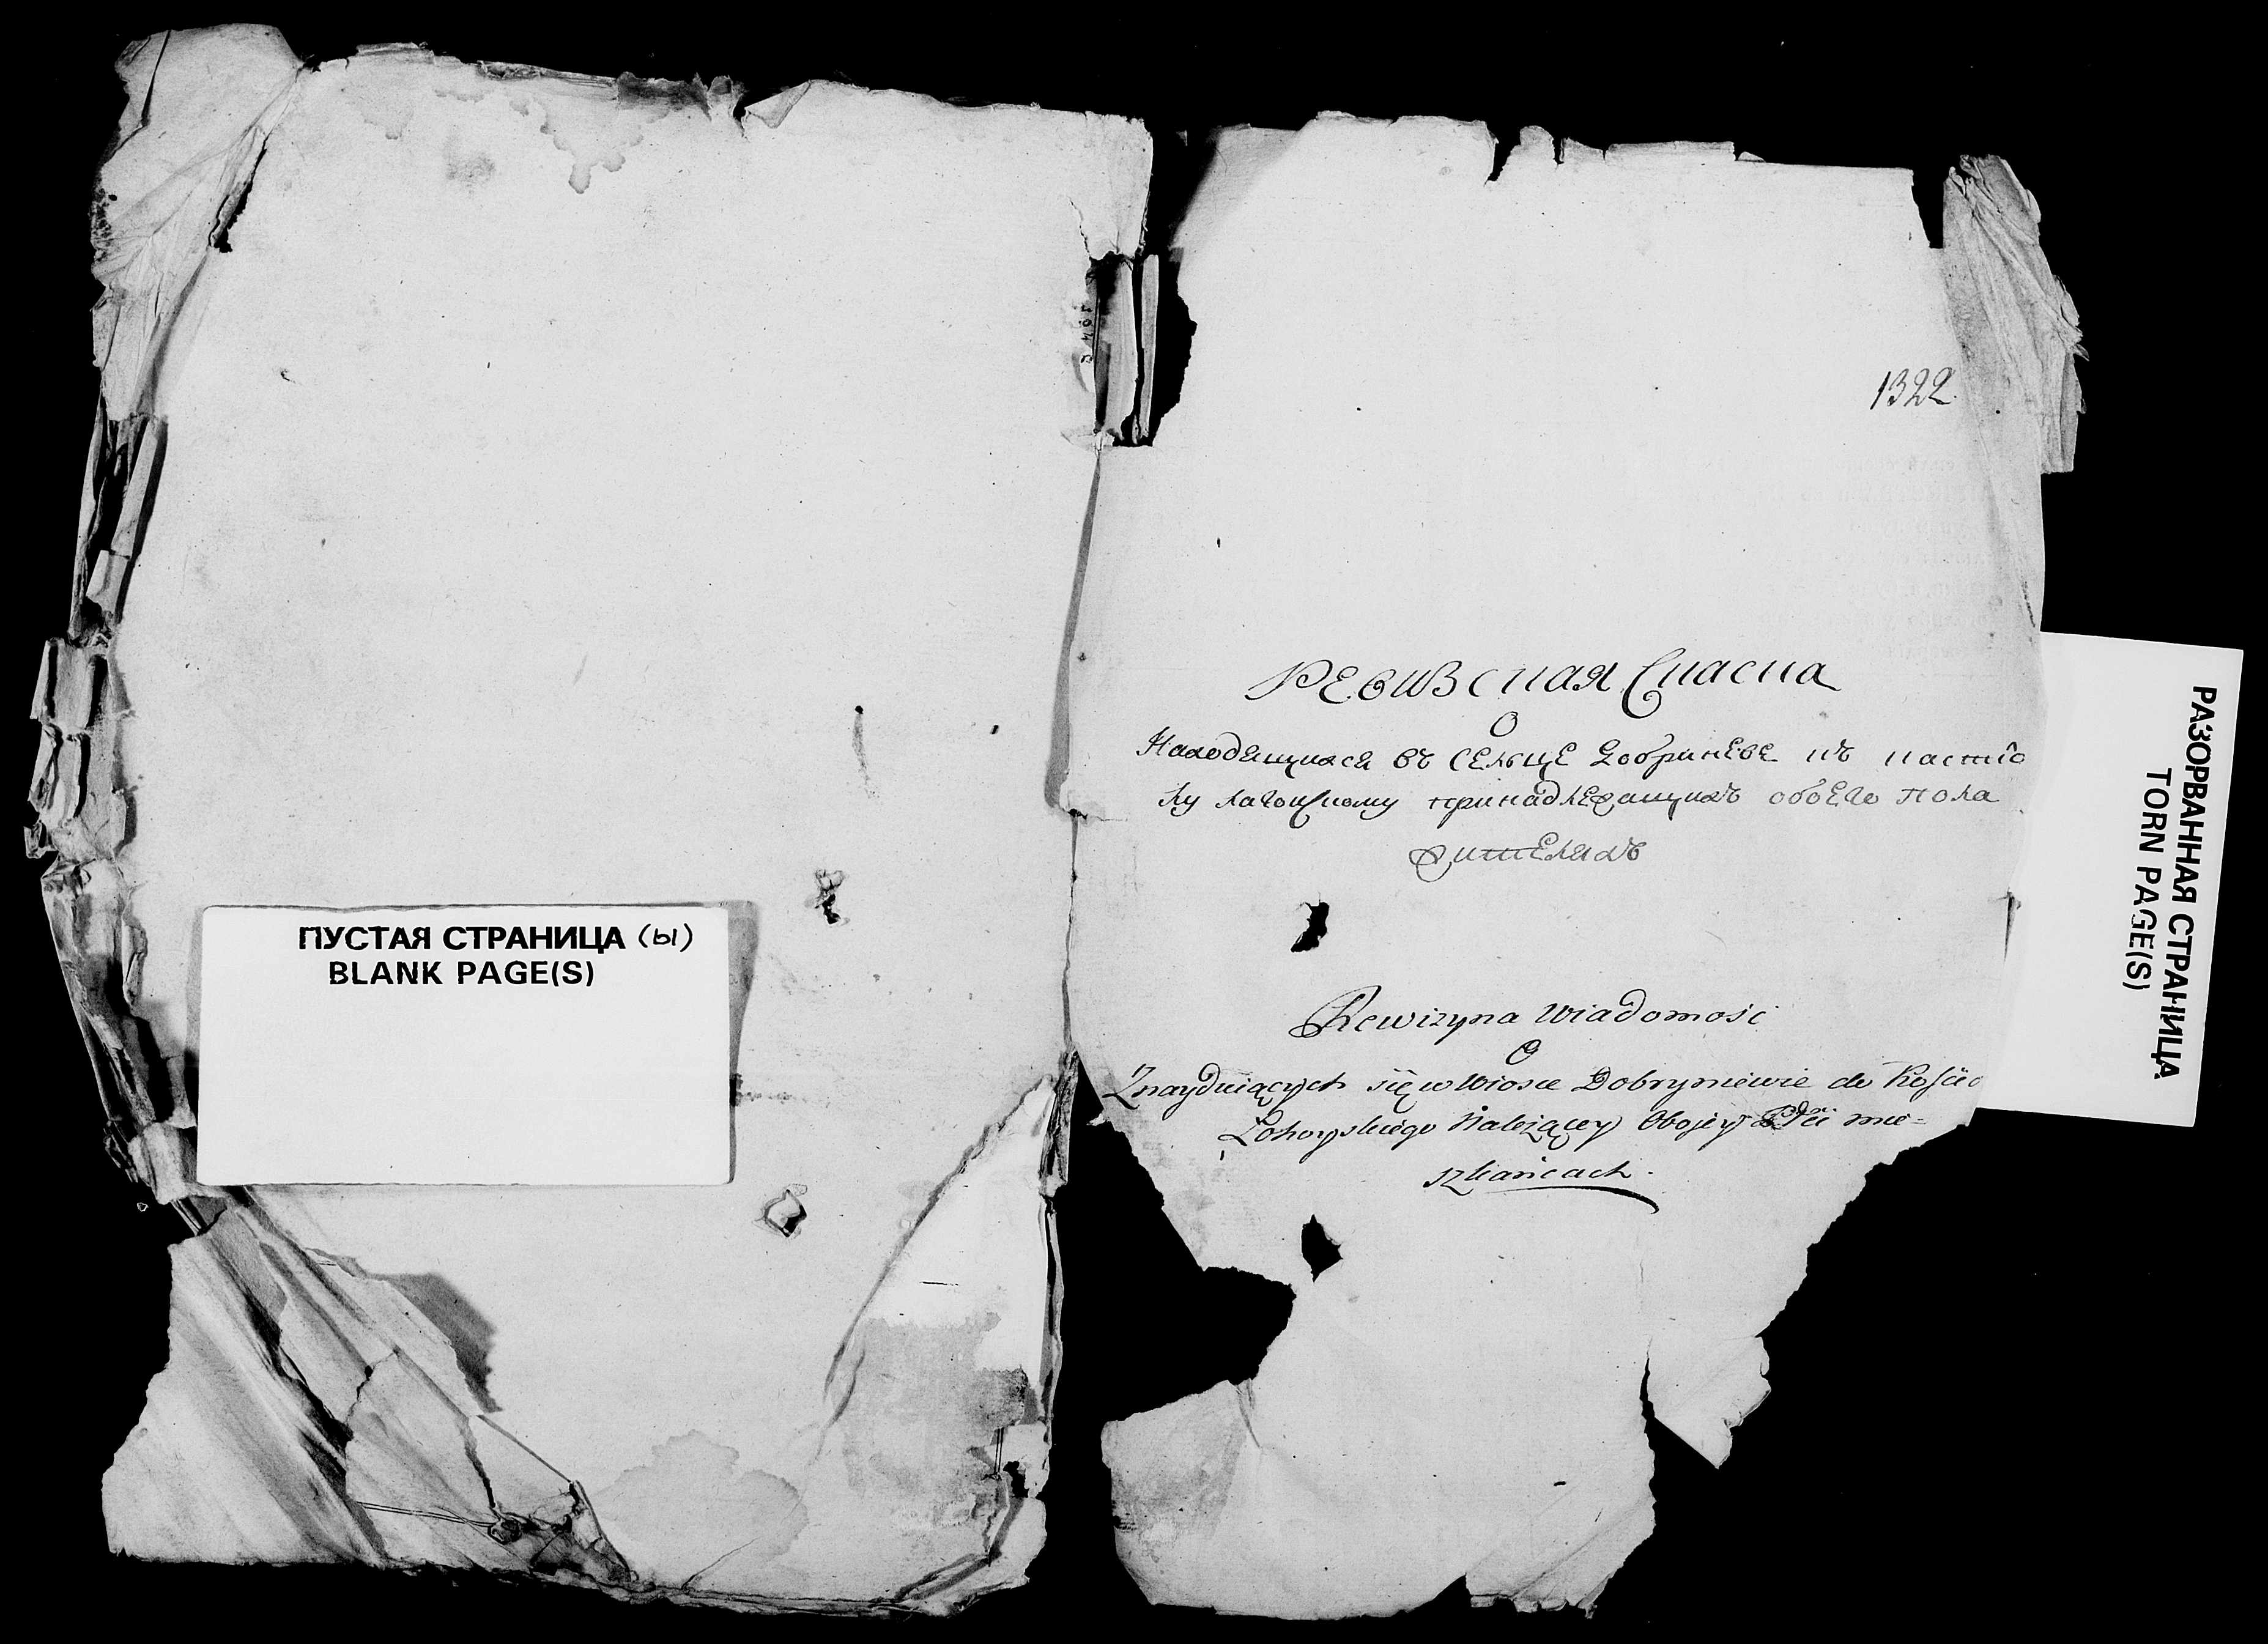 ПУСТАЯ СТРАНИЦА (ы)
BLANK PAGE(S)
1322.
Ревизсная Сказка
О
Находящихся въ Сельце Добриневе къ костіо
лу лагойскому принадлежащихъ обоего пола
жителяхъ
Rewizyna Wiadomość
O
Znayduiących się w Wiosce Dobryniewie do Kościo
Lohoyskiego Należącey Obojey Płci mie-
szkańcach.
РАЗОРВАННАЯ СТРАНИЦА
TORN PAGE(S)